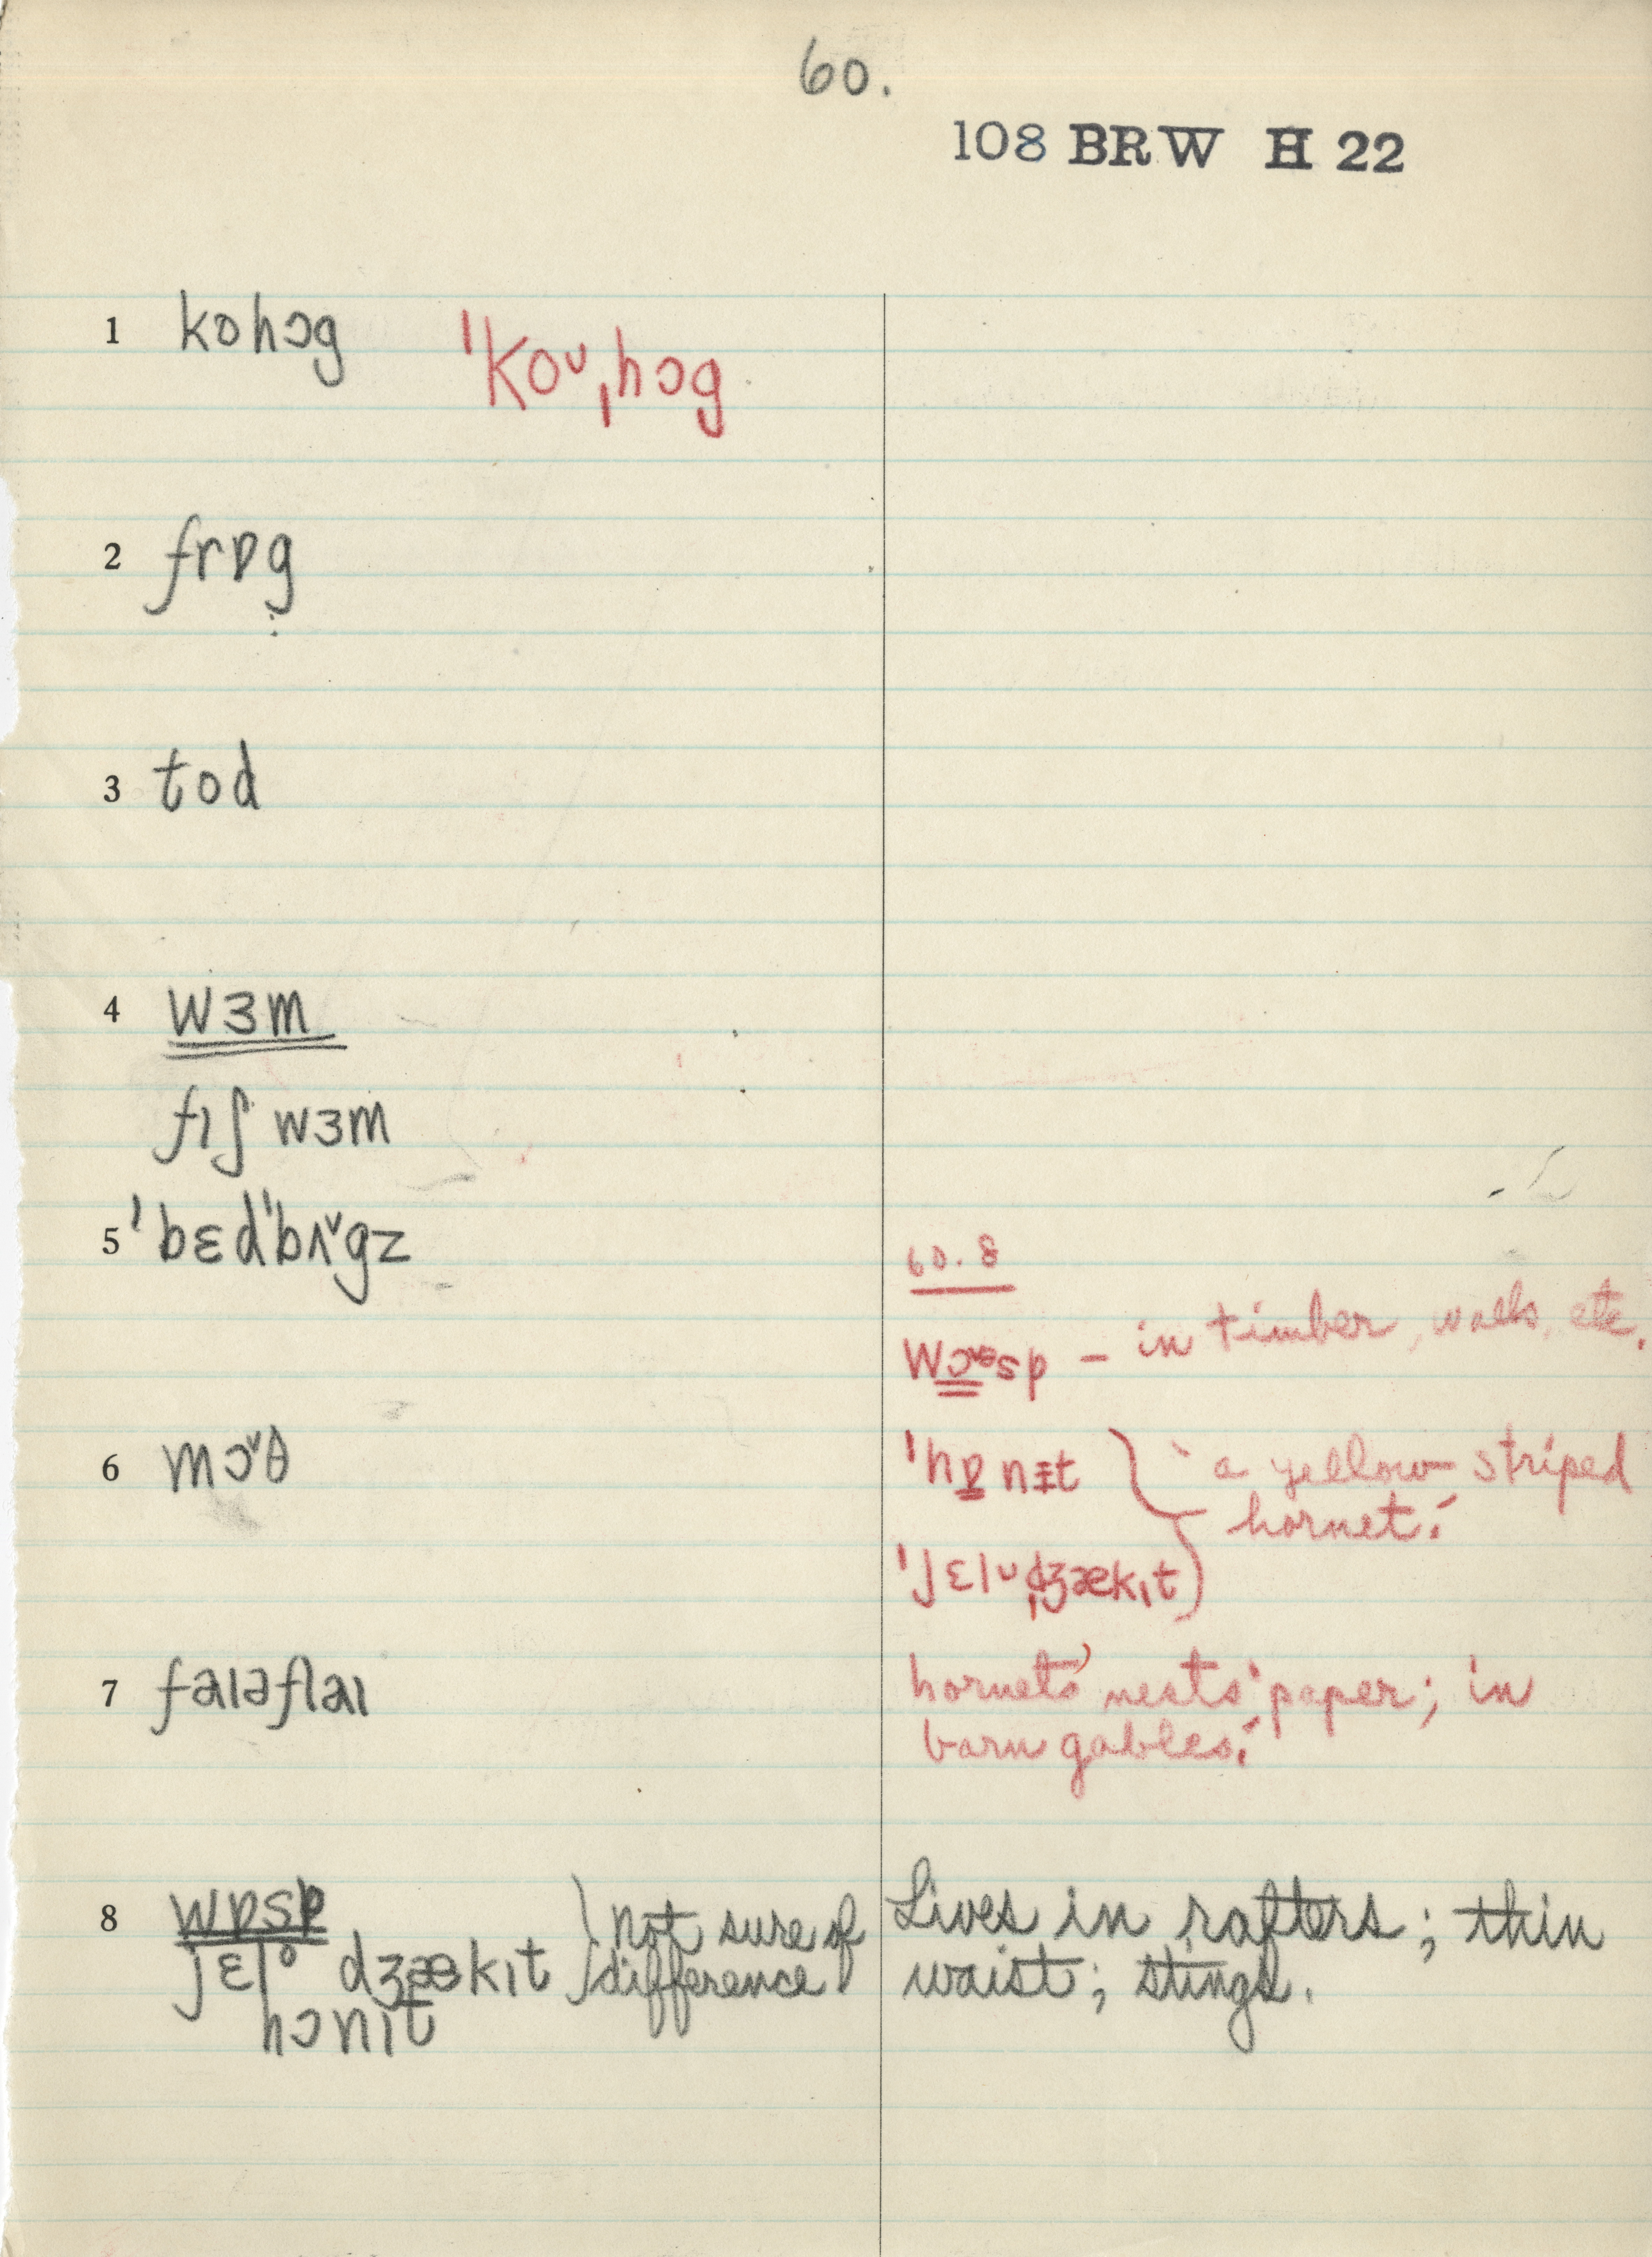 60.
108 BRW H 22
1 kohɔg ˈkoᴜˌhɔg
2 frɒg
3 tod
4 wɜm
fɪʃ wɜm
5 ˈbɛdˈbʌ˅gz
6 mɔ˅θ
7 faɪəflaɪ
8 wɒsp
jɛlᵒ dʒækɪt } not sure of
hɔnɪt difference
60.8
wɔsp – in timber, walls, etc.
ˈhɒnɪt } 'a yellow striped
hornet.'
ˈjɛlᴜˌdʒækɪt
hornets' nests 'paper; in
barn gables.'
Lives in rafters; thin
waist; stings.